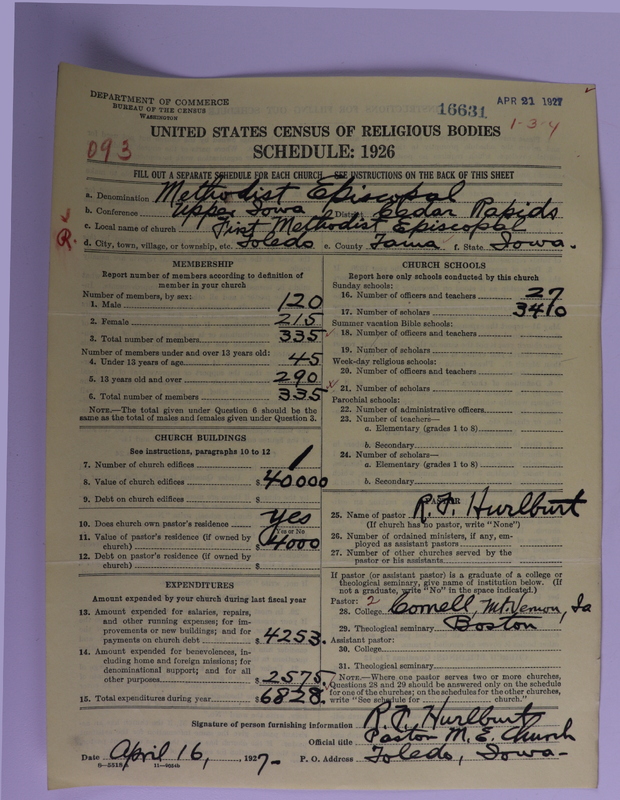 DEPARTMENT OF COMMERCE
BUREAU OF THE CENSUS
WASHINGTON
16631
APR 21 1927
1-3-4
UNITED STATES CENSUS OF RELIGIOUS BODIES
093
SCHEDULE: 1926
FILL OUT A SEPARATE SCHEDULE FOR EACH CHURCH—SEE INSTRUCTIONS ON THE BACK OF THIS SHEET
a. Denomination Methodist Episcopal
b. Conference Upper Iowa District Cedar Rapids
c. Local name of church First Methodist Episcopal
R.
d. City, town, village, or township, etc. Toledo e. County Tama f. State Iowa.
MEMBERSHIP
Report number of members according to definition of
member in your church
Number of members, by sex:
1. Male 120
2. Female 215
3. Total number of members 335
Number of members under and over 13 years old:
4. Under 13 years of age 45
5. 13 years old and over 290
6. Total number of members 335
NOTE.—The total given under Question 6 should be the
same as the total of males and females given under Question 3.
CHURCH BUILDINGS
See instructions, paragraphs 10 to 12
7. Number of church edifices 1
8. Value of church edifices $40000
9. Debt on church edifices $
10. Does church own pastor's residence yes
Yes or No
11. Value of pastor's residence (if owned by
church) $4000
12. Debt on pastor's residence (if owned by
church) $
EXPENDITURES
Amount expended by your church during last fiscal year
13. Amount expended for salaries, repairs,
and other running expenses; for im-
provements or new buildings; and for
payments on church debt $4253.
14. Amount expended for benevolences, in-
cluding home and foreign missions; for
denominational support; and for all
other purposes 2575.
15. Total expenditures during year $6828.
CHURCH SCHOOLS
Report here only schools conducted by this church
Sunday schools:
16. Number of officers and teachers 27
17. Number of scholars 340
Summer vacation Bible schools:
18. Number of officers and teachers
19. Number of scholars
Week-day religious schools:
20. Number of officers and teachers
21. Number of scholars
Parochial schools:
22. Number of administrative officers
23. Number of teachers—
a. Elementary (grades 1 to 8)
b. Secondary
24. Number of scholars—
a. Elementary (grades 1 to 8)
b. Secondary
PASTOR
25. Name of pastor R. F. Hurlburt
(If church has no pastor, write "None")
26. Number of ordained ministers, if any, em-
ployed as assistant pastors
27. Number of other churches served by the
pastor or his assistants
If pastor (or assistant pastor) is a graduate of a college or
theological seminary, give name of institution below. (If
not a graduate, write "No" in the space indicated.)
Pastor: 2
28. College Cornell, Mt. Vernon, Ia
29. Theological seminary Boston
Assistant pastor:
30. College
31. Theological seminary
NOTE.—Where one pastor serves two or more churches,
Questions 28 and 29 should be answered only on the schedule
for one of the churches; on the schedules for the other churches,
write "See schedule for church."
Signature of person furnishing information R. F. Hurlburt
Official title Pastor M. E. Church
Date April 16, 1927- P. O. Address Toledo, Iowa-